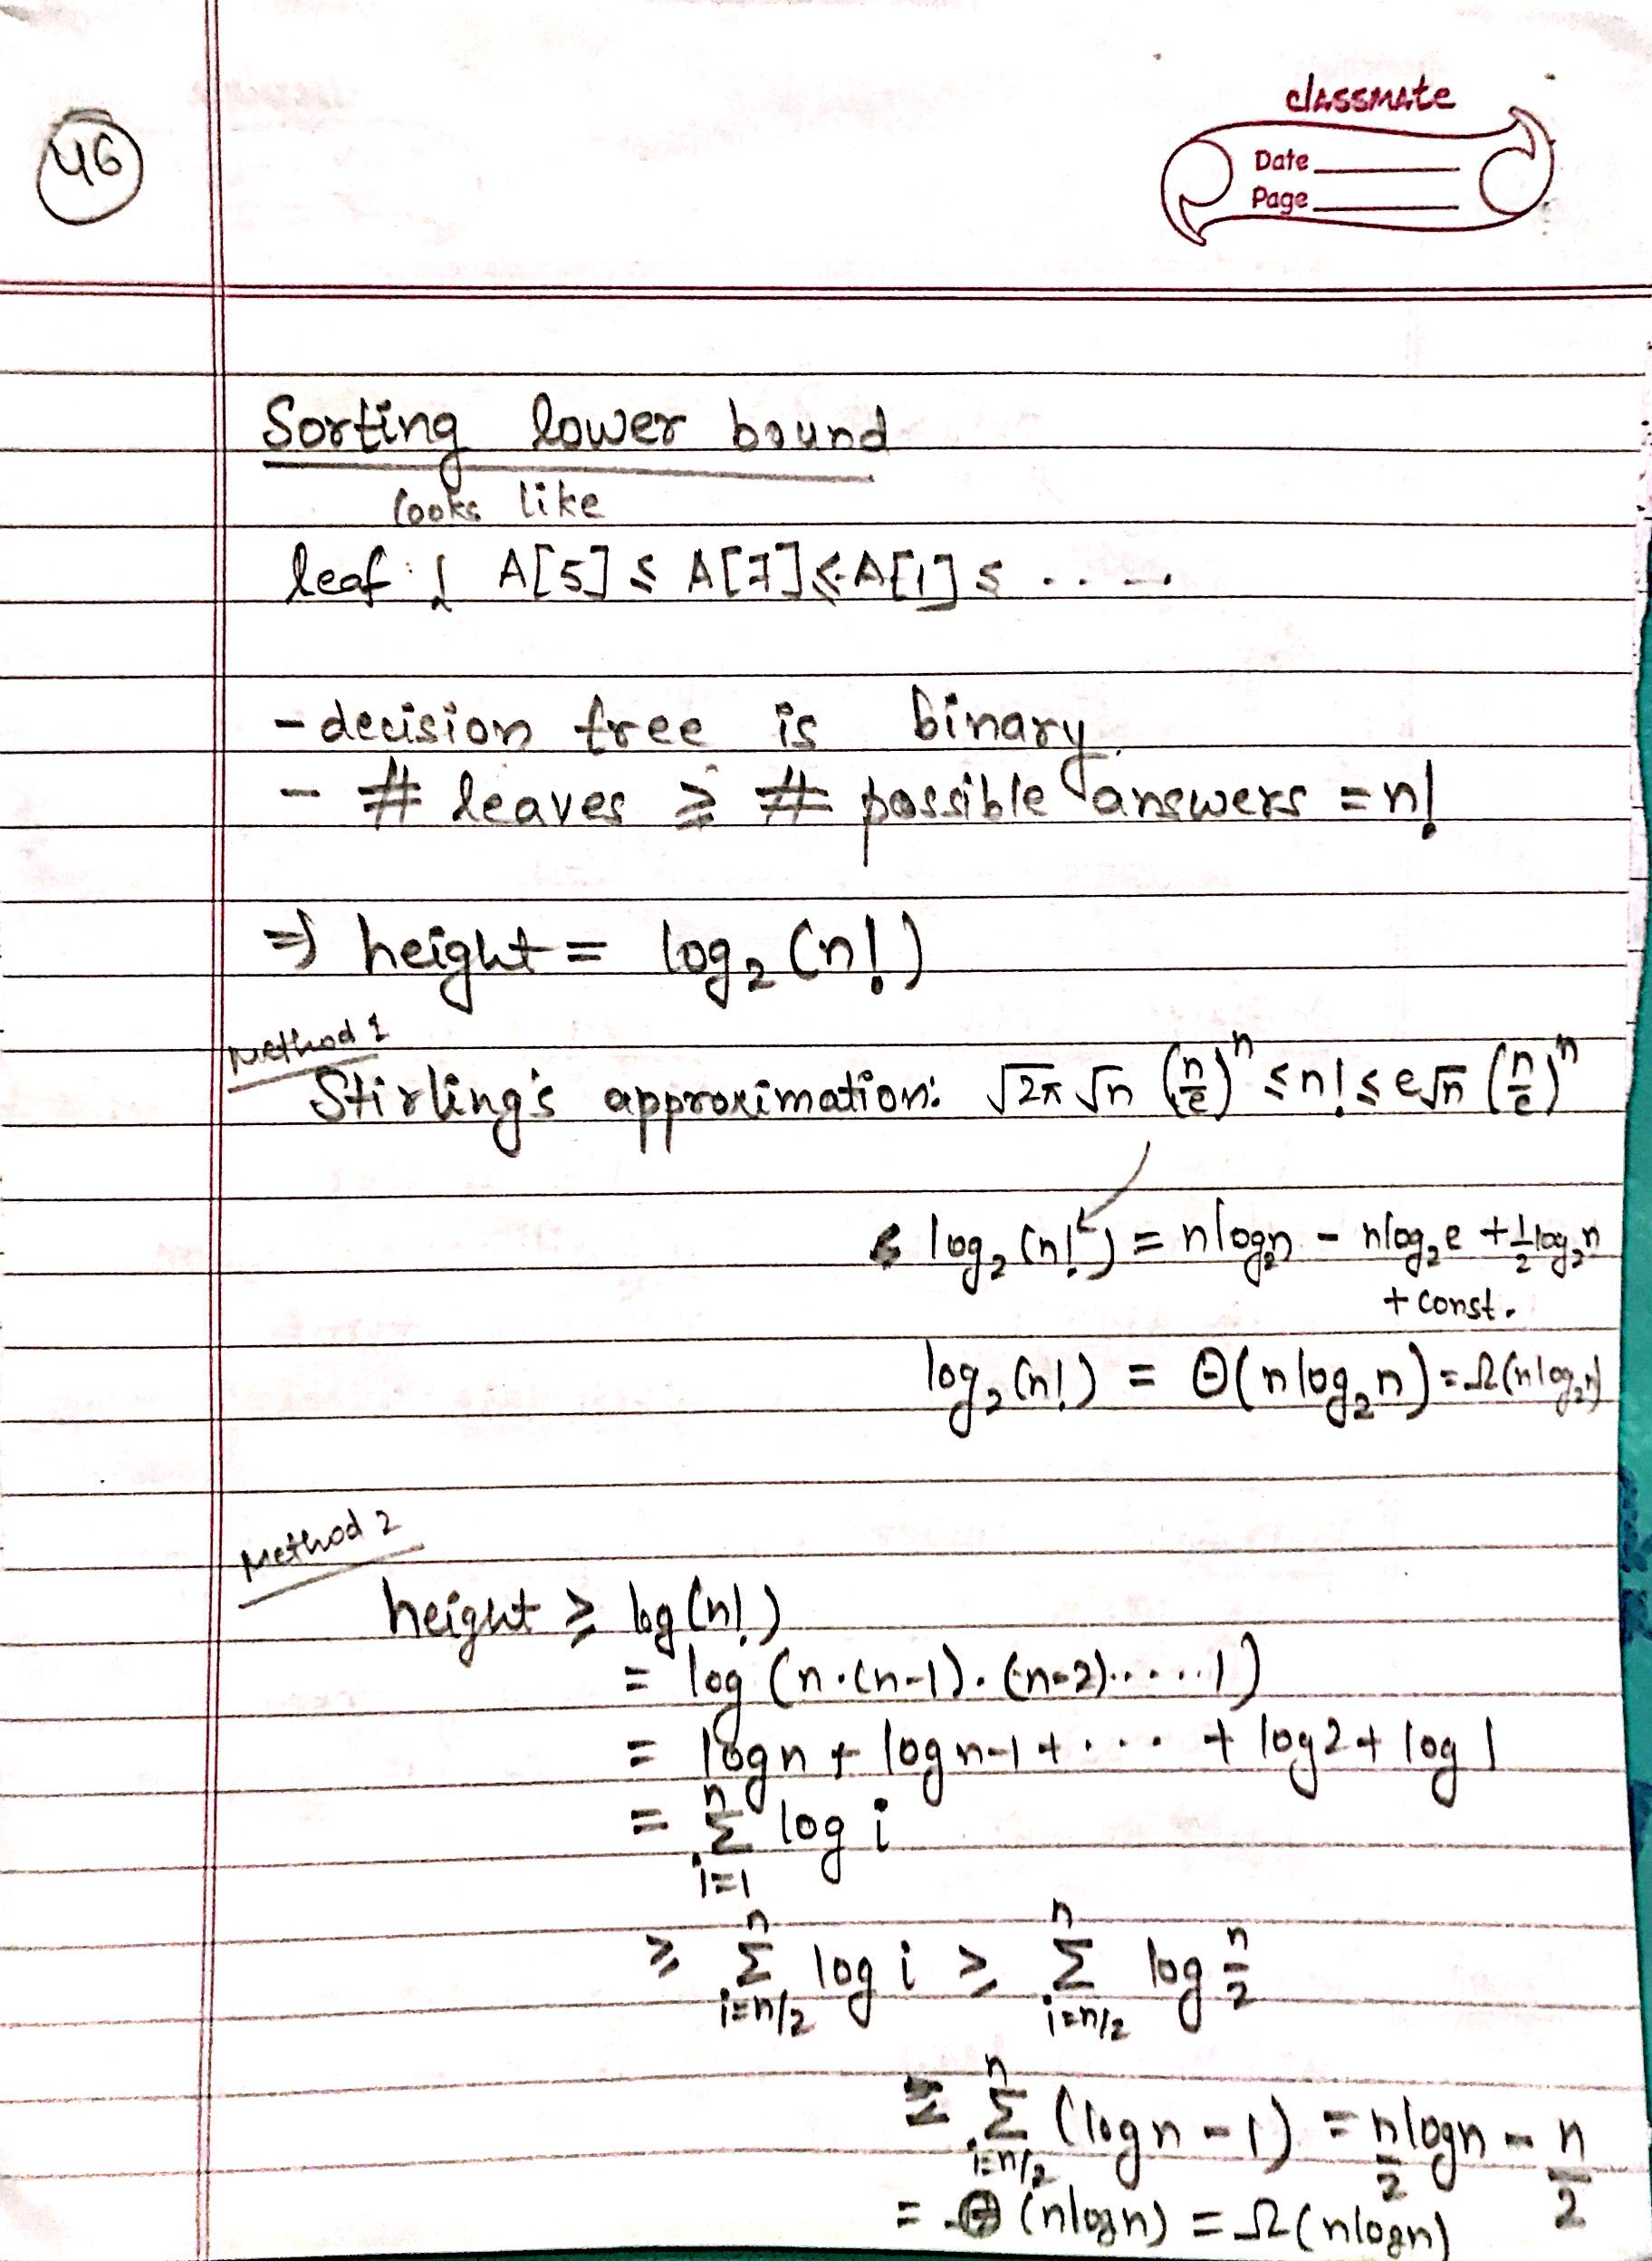 46
classmate
Date
Page
Sorting lower bound
looks like
leaf : A[5] ≤ A[7] ≤ A[1] ≤ .....
- decision tree is binary.
- # leaves ≥ # possible answers = n!
⇒ height = log₂ (n!)
Method 1
Stirling's approximation: √2π √n (n/e)ⁿ ≤ n! ≤ e√n (n/e)ⁿ
log₂ (n!) = nlog₂n - nlog₂e + 1/2 log₂n
+ const.
log₂(n!) = Θ(nlog₂n) = Ω(nlog₂n)
Method 2
height ≥ log(n!)
= log (n.(n-1).(n-2).....1)
= logn + logn-1 + .... + log2 + log 1
= Σ_{i=1}^{n} log i
≥ Σ_{i=n/2}^{n} log i ≥ Σ_{i=n/2}^{n} log n/2
= Σ_{i=n/2}^{n} (logn - 1) = n/2 logn - n/2
= Θ (nlogn) = Ω(nlogn)